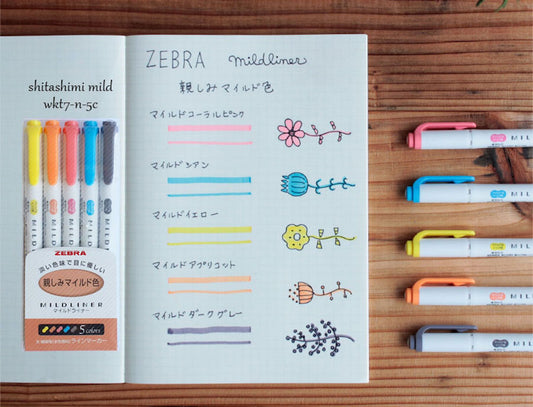 shitashimi mild
wkt7-n-5c
ZEBRA
濃い色味で目に優しい
親しみマイルド色
MILDLINER
マイルドライナー
5 colors
ラインマーカー
ZEBRA mildliner
親しみマイルド色
マイルドコーラルピンク
マイルドシアン
マイルドイエロー
マイルドアプリコット
マイルドダークグレー
MILD
MILD
MILD
MILD
MILD